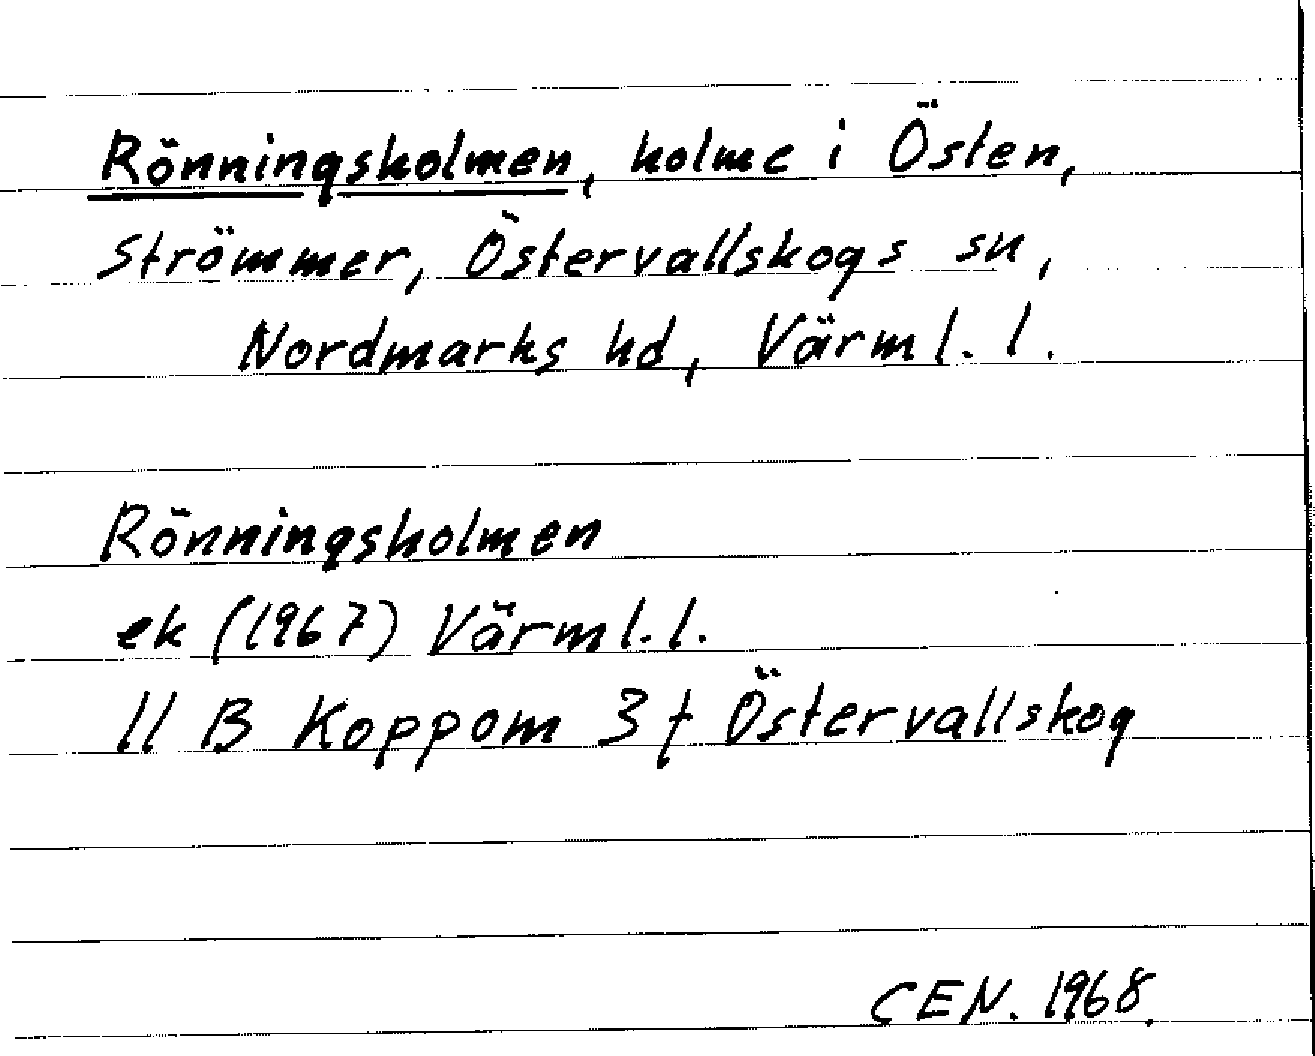 Rönningsholmen, holme i Östen,
Strömmer, Östervallskogs sn,
Nordmarks hd, Värml. l.
Rönningsholmen
ek (1967) Värml. l.
11 B Koppom 3 f Östervallskog
CEN. 1968.